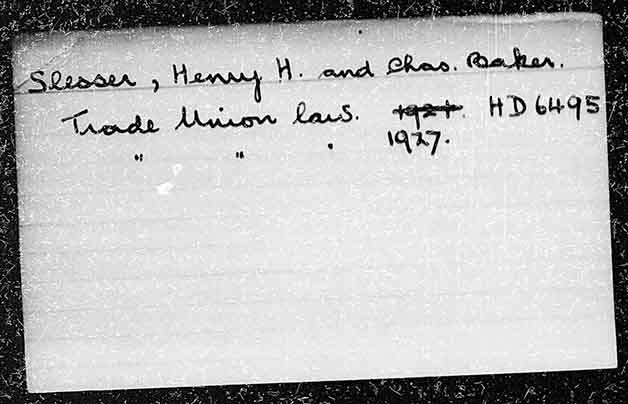 Slesser, Henry H. and Chas. Baker.
Trade Union laws. 1921. HD6495
" " " 1927.